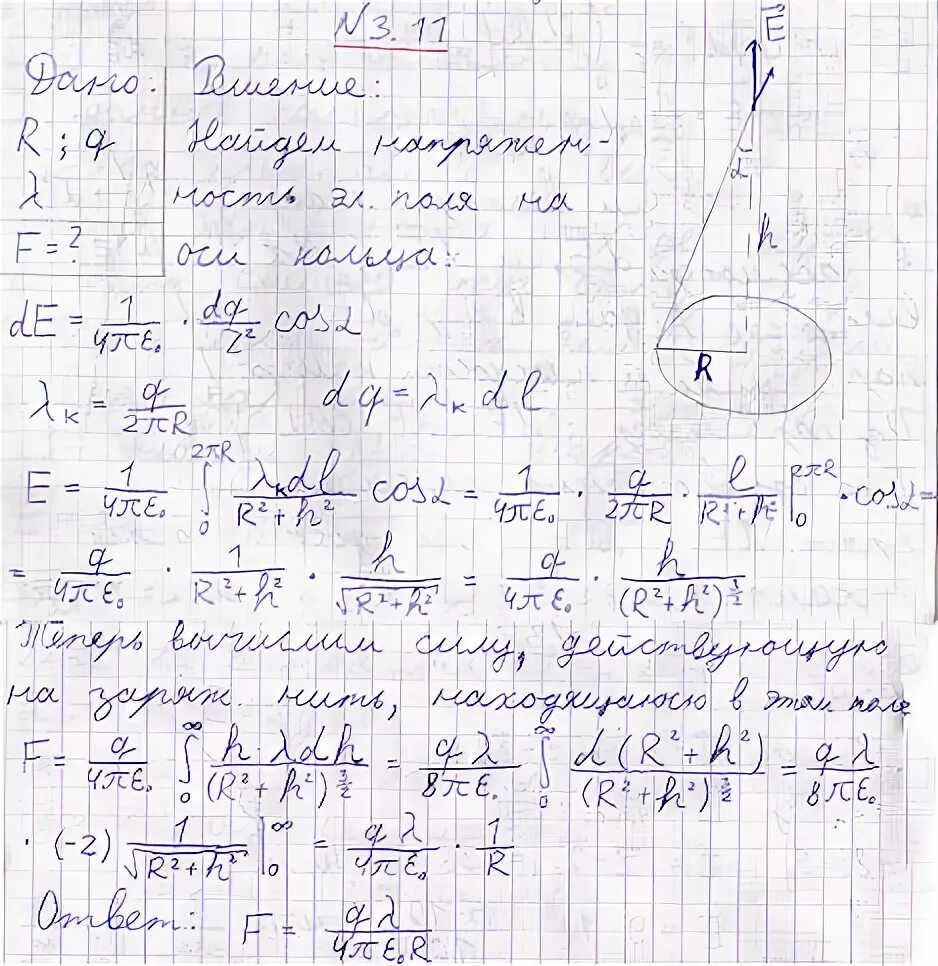 N 3. 11
Дано: Решение:
R ; q Найдем напряжен-
λ ность эл. поля на
F = ? оси кольца:
dE = 1/(4πε₀) · dq/r² cosα
λк = q/(2πR) dq = λк dl
E = 1/(4πε₀) ∫₀^(2πR) λк dl/(R² + h²) cosα = 1/(4πε₀) · q/(2πR) · l/(R² + h²) |₀^(2πR) · cosα =
= q/(4πε₀) · 1/(R² + h²) · h/√(R² + h²) = q/(4πε₀) · h/(R² + h²)^(3/2)
Теперь вычислим силу, действующую
на заряж. нить, находящуюся в этом поле
F = q/(4πε₀) ∫₀^∞ h λ dh/(R² + h²)^(3/2) = qλ/(8πε₀) ∫₀^∞ d(R² + h²)/(R² + h²)^(3/2) = qλ/(8πε₀) ·
· (-2) 1/√(R² + h²) |₀^∞ = qλ/(4πε₀) · 1/R
Ответ: F = qλ/(4πε₀R)
E
α
h
R